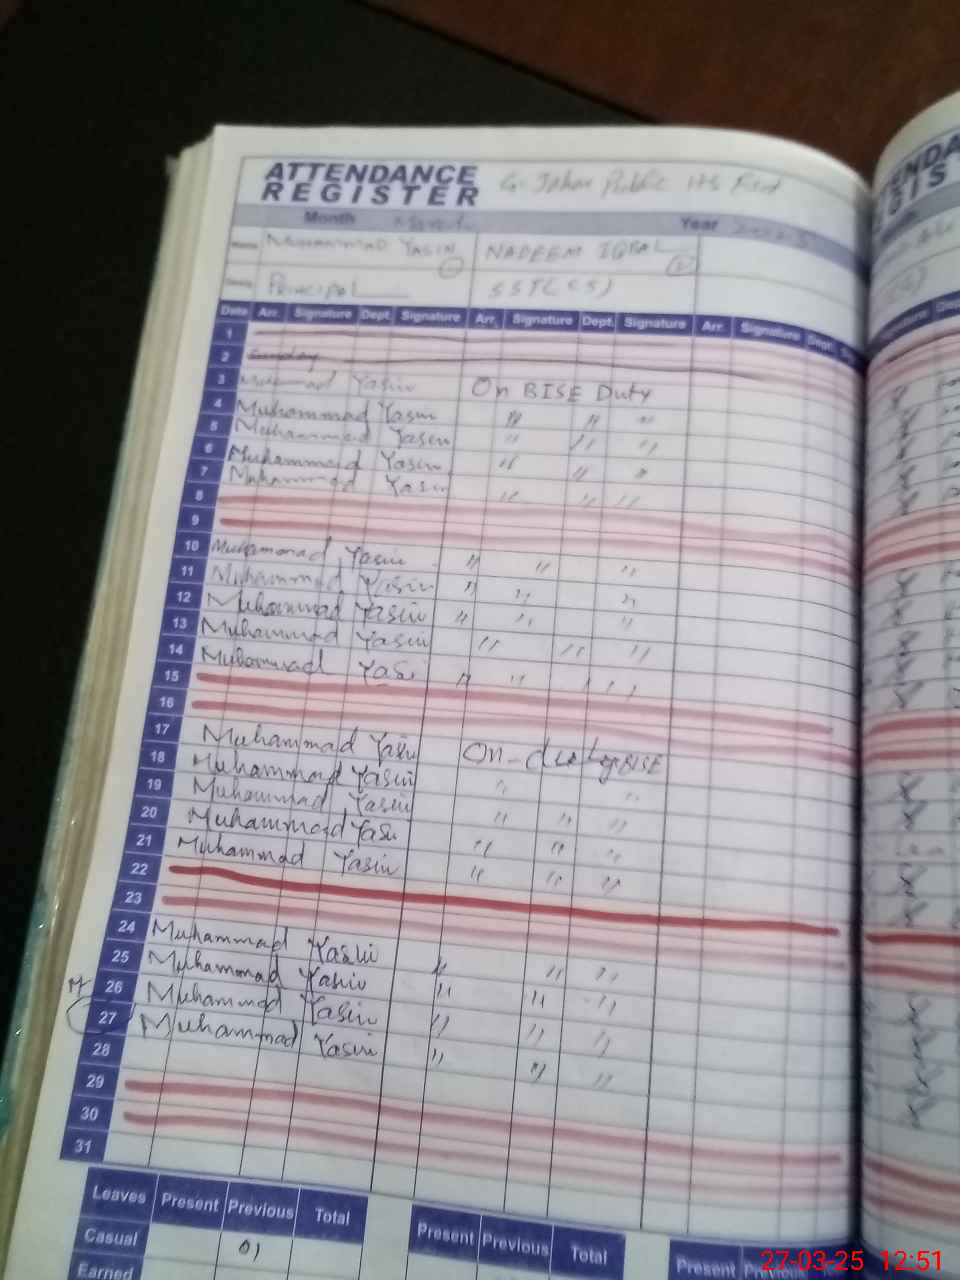 ATTENDANCE
REGISTER
G. Jahor Public HS
Month
Year
MUHAMMAD YASIN NADEEM IQBAL
PRINCIPAL SST(CS)
Date Arr. Signature Dept. Signature Arr. Signature Dept. Signature Arr. Signature Dept.
1
2 Sunday
3 Muhammad Yasin On BISE Duty
4 Muhammad Yasin " " "
5 Muhammad Yasin " " "
6 Muhammad Yasin " " "
7 Muhammad Yasin " " "
8
9
10 Muhammad Yasin " " "
11 Muhammad Yasin " " "
12 Muhammad Yasin " " "
13 Muhammad Yasin " " "
14 Muhammad Yasi " " "
15
16
17 Muhammad Yasin On duty BISE
18 Muhammad Yasin " "
19 Muhammad Yasin " " "
20 Muhammad Yasi " " "
21 Muhammad Yasin " " "
22
23
24 Muhammad Yasin " " "
25 Muhammad Yasin " " "
26 Muhammad Yasin " " "
27 Muhammad Yasin " " "
28
29
30
31
Leaves Present Previous Total Present Previous Total Present
Casual 01
Earned
27-03-25 12:51